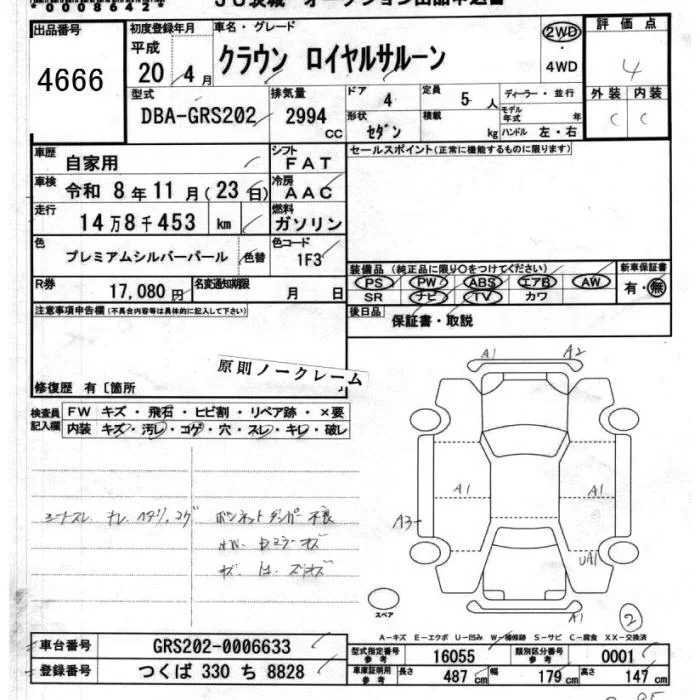 00086424
JU茨城 オークション出品申込書
出品番号 初度登録年月 車名・グレード 評価点
4666 平成 20 4月 クラウン ロイヤルサルーン 2WD・4WD 4
型式 排気量 ドア 定員 ディーラー・並行 外装 内装
DBA-GRS202 2994 CC 4 5人 モデル年式 年 C C
形状 セダン 積載 kg ハンドル 左・右
車歴 自家用 シフト FAT セールスポイント(正常に機能するものに限ります)
車検 令和 8年 11月(23日) 冷房 AAC
走行 14万8千453 km 燃料 ガソリン
色 プレミアムシルバーパール 色替 色コード 1F3
装備品(純正品に限り○をつけてください) 新車保証書
R券 17,080円 名変通知期限 月 日 PS PW ABS エアB AW 有・無
SR ナビ TV カワ
注意事項申告欄(不具合内容等は具体的に記入して下さい) 後日品 保証書・取説
原則ノークレーム
修復歴 有〔箇所 〕
検査員記入欄 FW キズ・飛石・ヒビ割・リペア跡・×要
内装 キズ・汚レ・コゲ・穴・スレ・キレ・破レ
A1 A2
A1 A1
A3
UA1
A1
シートスレ ボンネットダンパー不良
スペア
2
A-キズ E-エクボ U-凹み W-補修跡 S-サビ C-腐食 XX-交換済
車台番号 GRS202-0006633 型式指定番号 参考 16055 類別区分番号 参考 0001
登録番号 つくば 330 ち 8828 車庫証明用 参考 長さ 487cm 幅 179cm 高さ 147cm